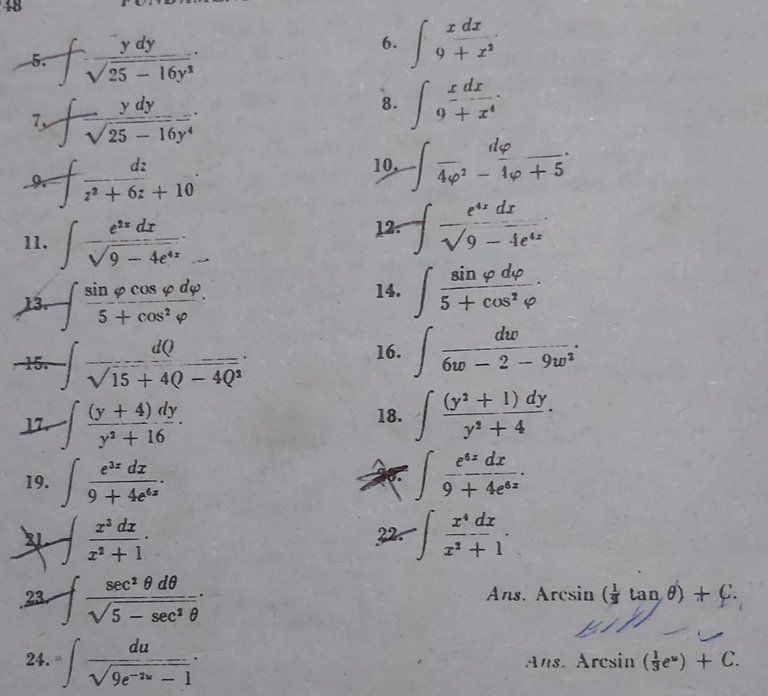 48
5. ∫ y dy / √(25 − 16y²).
6. ∫ x dx / (9 + x²).
7. ∫ y dy / √(25 − 16y⁴).
8. ∫ x dx / (9 + x⁴).
9. ∫ dz / (z² + 6z + 10).
10. ∫ dφ / (4φ² − 4φ + 5).
11. ∫ e²ˣ dx / √(9 − 4e⁴ˣ).
12. ∫ e⁴ˣ dx / √(9 − 4e⁴ˣ).
13. ∫ sin φ cos φ dφ / (5 + cos² φ).
14. ∫ sin φ dφ / (5 + cos² φ).
15. ∫ dQ / √(15 + 4Q − 4Q²).
16. ∫ dw / (6w − 2 − 9w²).
17. ∫ (y + 4) dy / (y² + 16).
18. ∫ (y² + 1) dy / (y² + 4).
19. ∫ e³ˣ dx / (9 + 4e⁶ˣ).
20. ∫ e⁶ˣ dx / (9 + 4e⁶ˣ).
21. ∫ x³ dx / (x² + 1).
22. ∫ x⁴ dx / (x² + 1).
23. ∫ sec² θ dθ / √(5 − sec² θ). Ans. Arcsin (½ tan θ) + C.
24. ∫ du / √(9e⁻²ᵘ − 1). Ans. Arcsin (⅓eᵘ) + C.